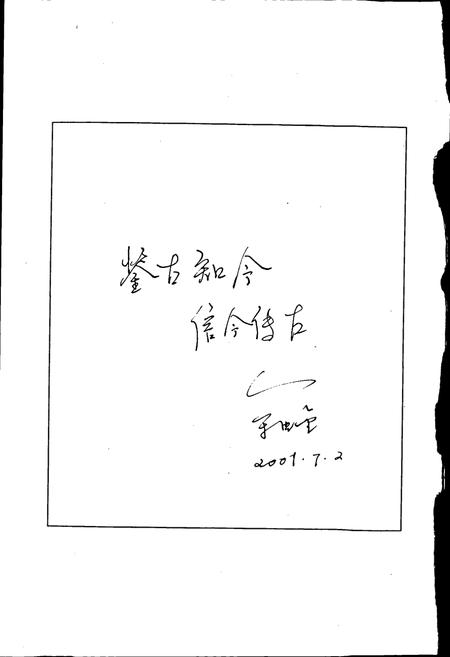 鉴古知今
信今传古
2001.7.2